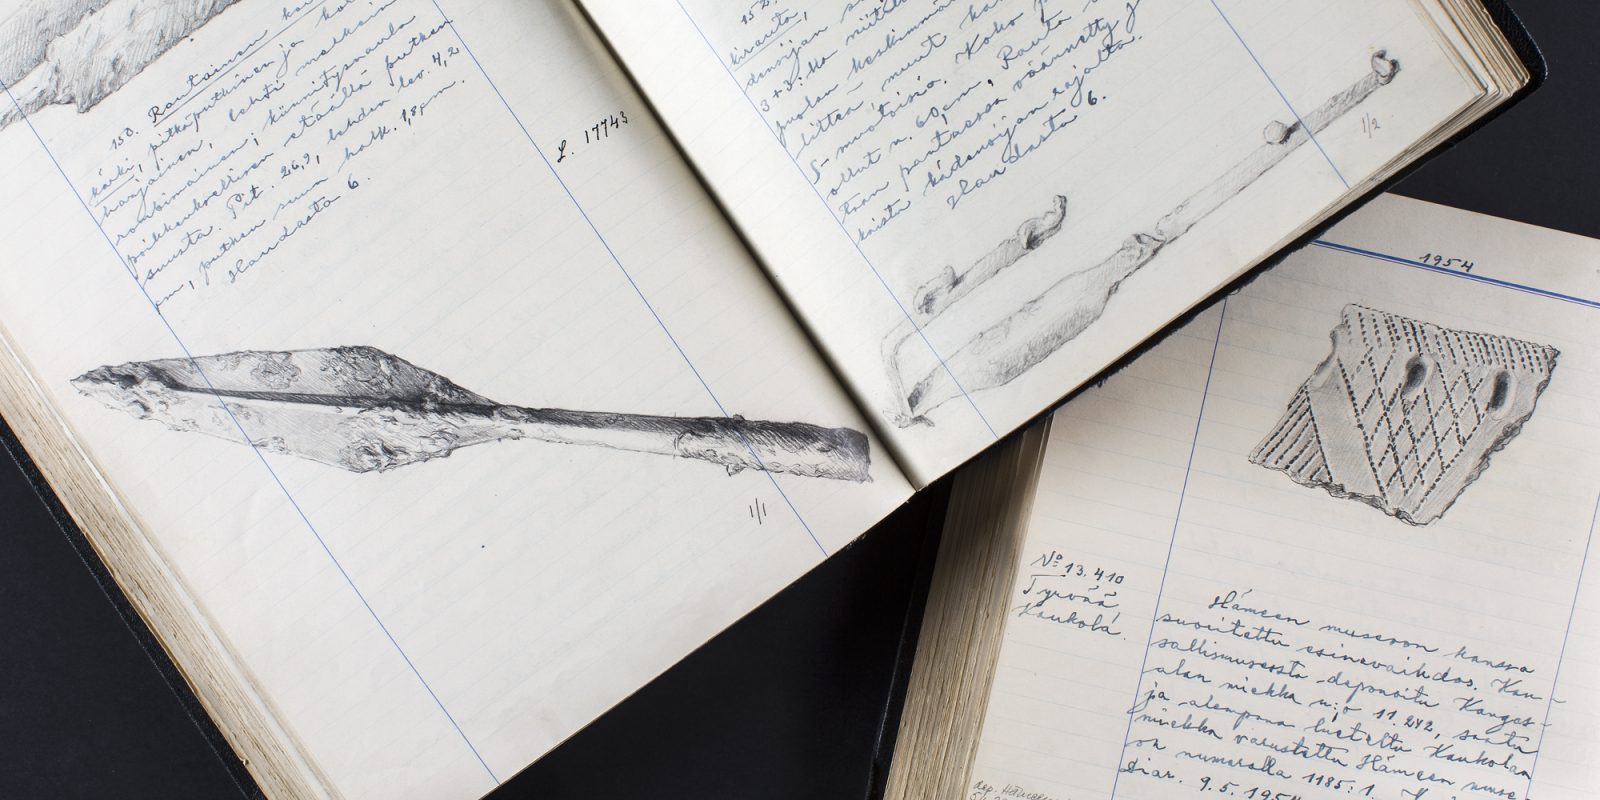 150. Rautainen
kärki, pitkäputkinen ja
harjainen, lehti melkein
rombimainen; kiinnitysnaula
poikkeuksellisen etäällä putken
suusta. Pit. 26,9, lehden lev. 4,2
cm, putken suun halk. 1,8 cm.
Haudasta 6.
L. 17743
1/1
152.
kirauta,
densijan
3+3:lla niitillä
puolan keskimmä
litteä, muut
S-muotoisia. Koko
ollut n. 60 cm, Rauta
tom partaassa väännetty
kaista kädensijan rajalta.
alan
Haudasta 6.
1/2
1954
No 13.410
Tyrvää
Kaukola.
Hämeen museon kanssa
suoritettu esinevaihdos. Kan-
sallismuseosta deponoitu Kangas-
alan miekka n:o 11.242, saatu
ja alempana lueteltu Kaukolan
miekka varustettu Hämeen muse
on numerolla 1185:1.
Diar. 9.5.1954
dep. Hämeen